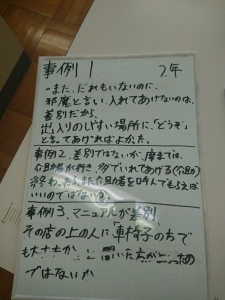 事例1 2年
・また、だれもいないのに、
邪魔と言い、入れてあげないのは、
差別だから、
出入りのしやすい場所に、「どうぞ」
と言ってあげればよかった。
事例2、差別ではないが、席までは、
介助者が行き、
終わったらまた介助者を呼んでもらえば
いいのではないか。
事例3、マニュアルが差別、
その店の上の人に「車椅子の方で
も大丈夫か
ではないか